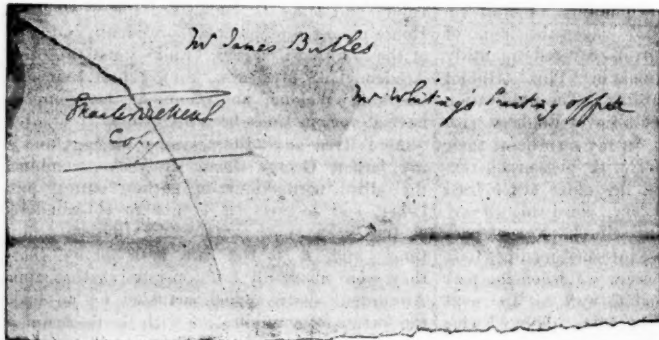 Mr James Birtles
Mr Whiting's Printing office
Charles Dickens'
Copy